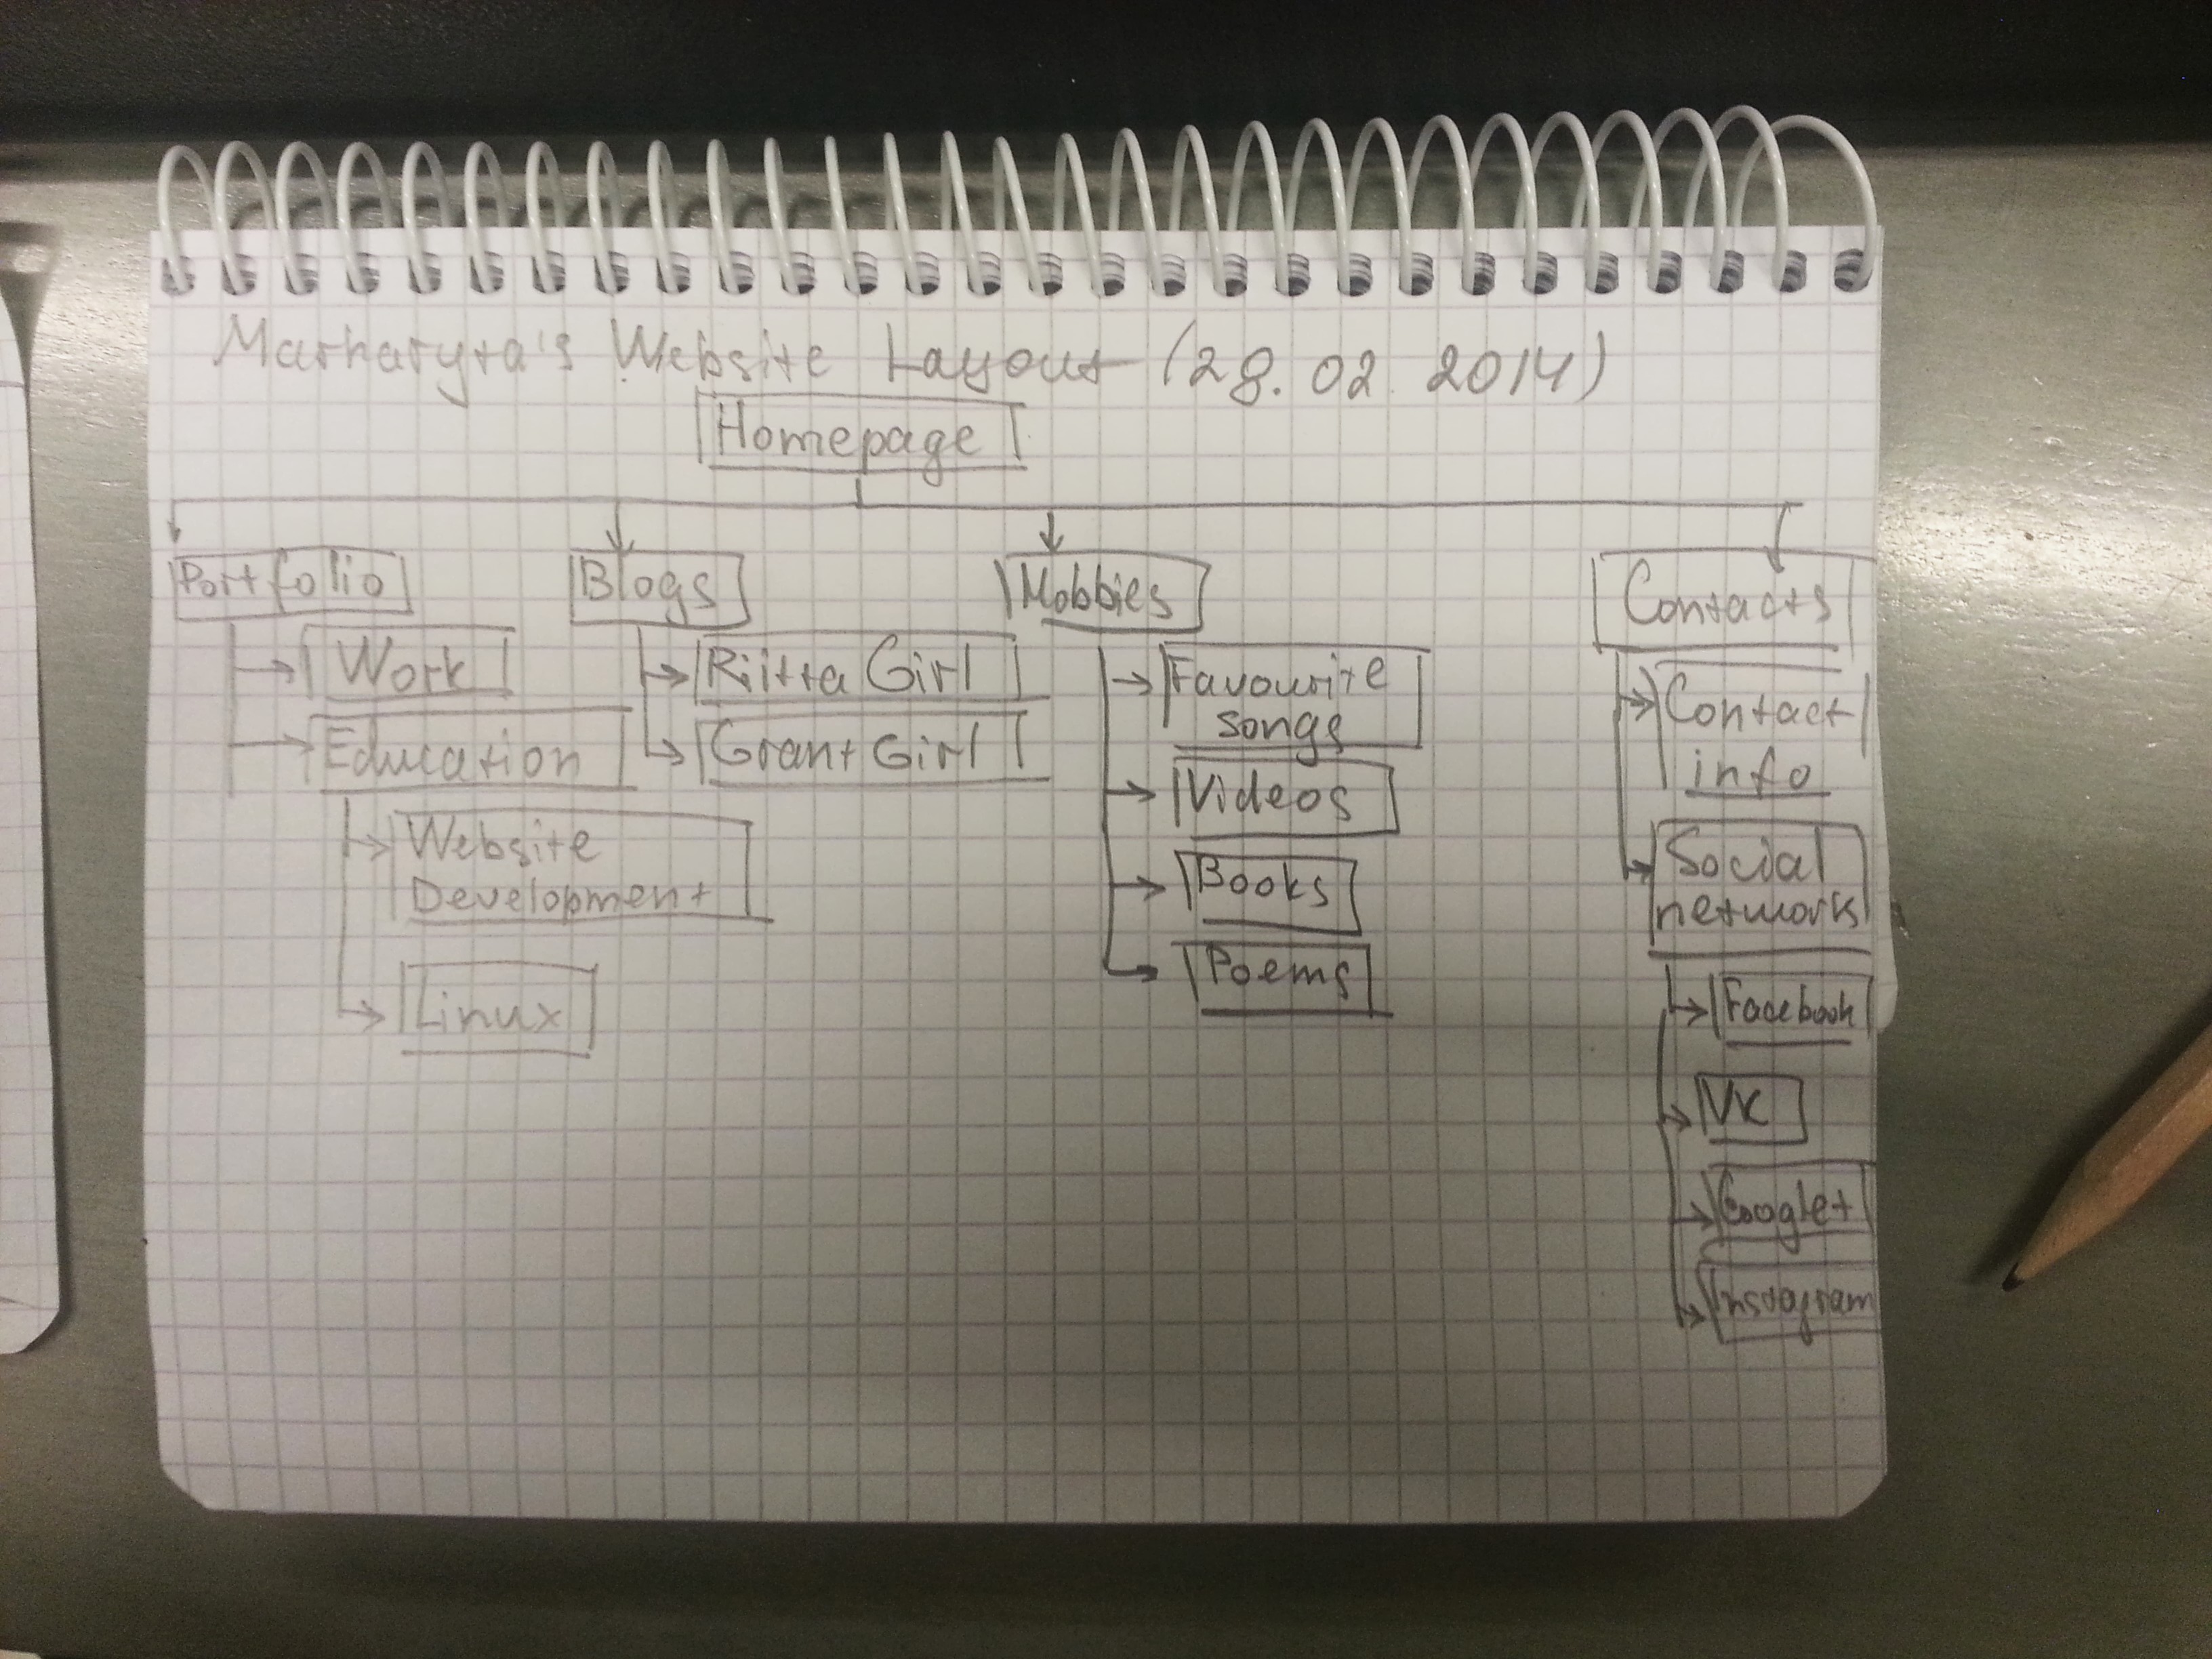 Marharyta's Website Layout (28.02.2014)
Homepage
Portfolio
Work
Education
Website
Development
Linux
Blogs
Riitta Girl
Grant Girl
Hobbies
Favourite
songs
Videos
Books
Poems
Contacts
Contact
info
Social
network
Facebook
VK
Google+
Instagram